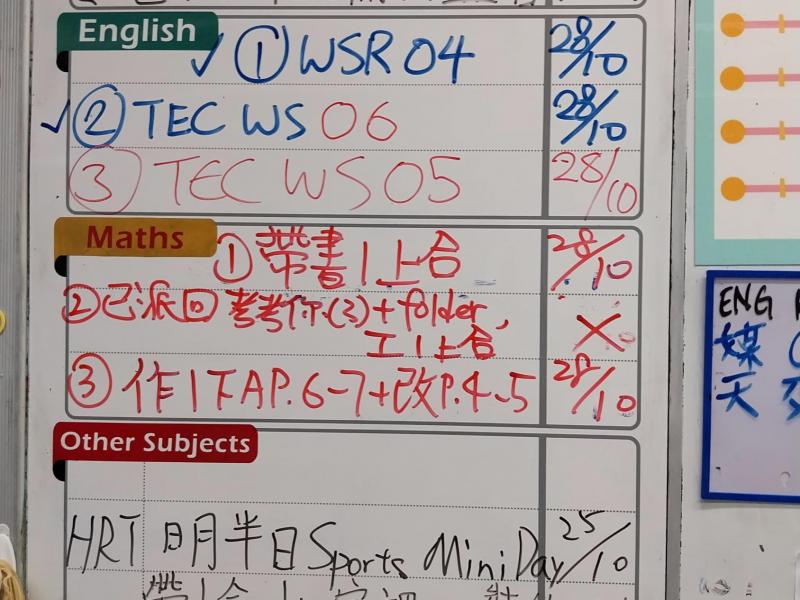 English
① WSR 04 28/10
② TEC WS 06 28/10
③ TEC WS 05 28/10
Maths
① 帶書1上台 28/10
② 已派回考考你P.(3)+folder, ×
工1上台
③ 作1下A P.6-7+改P.4-5 28/10
Other Subjects
HRT 明半日Sports Mini Day 25/10
ENG
媒
天